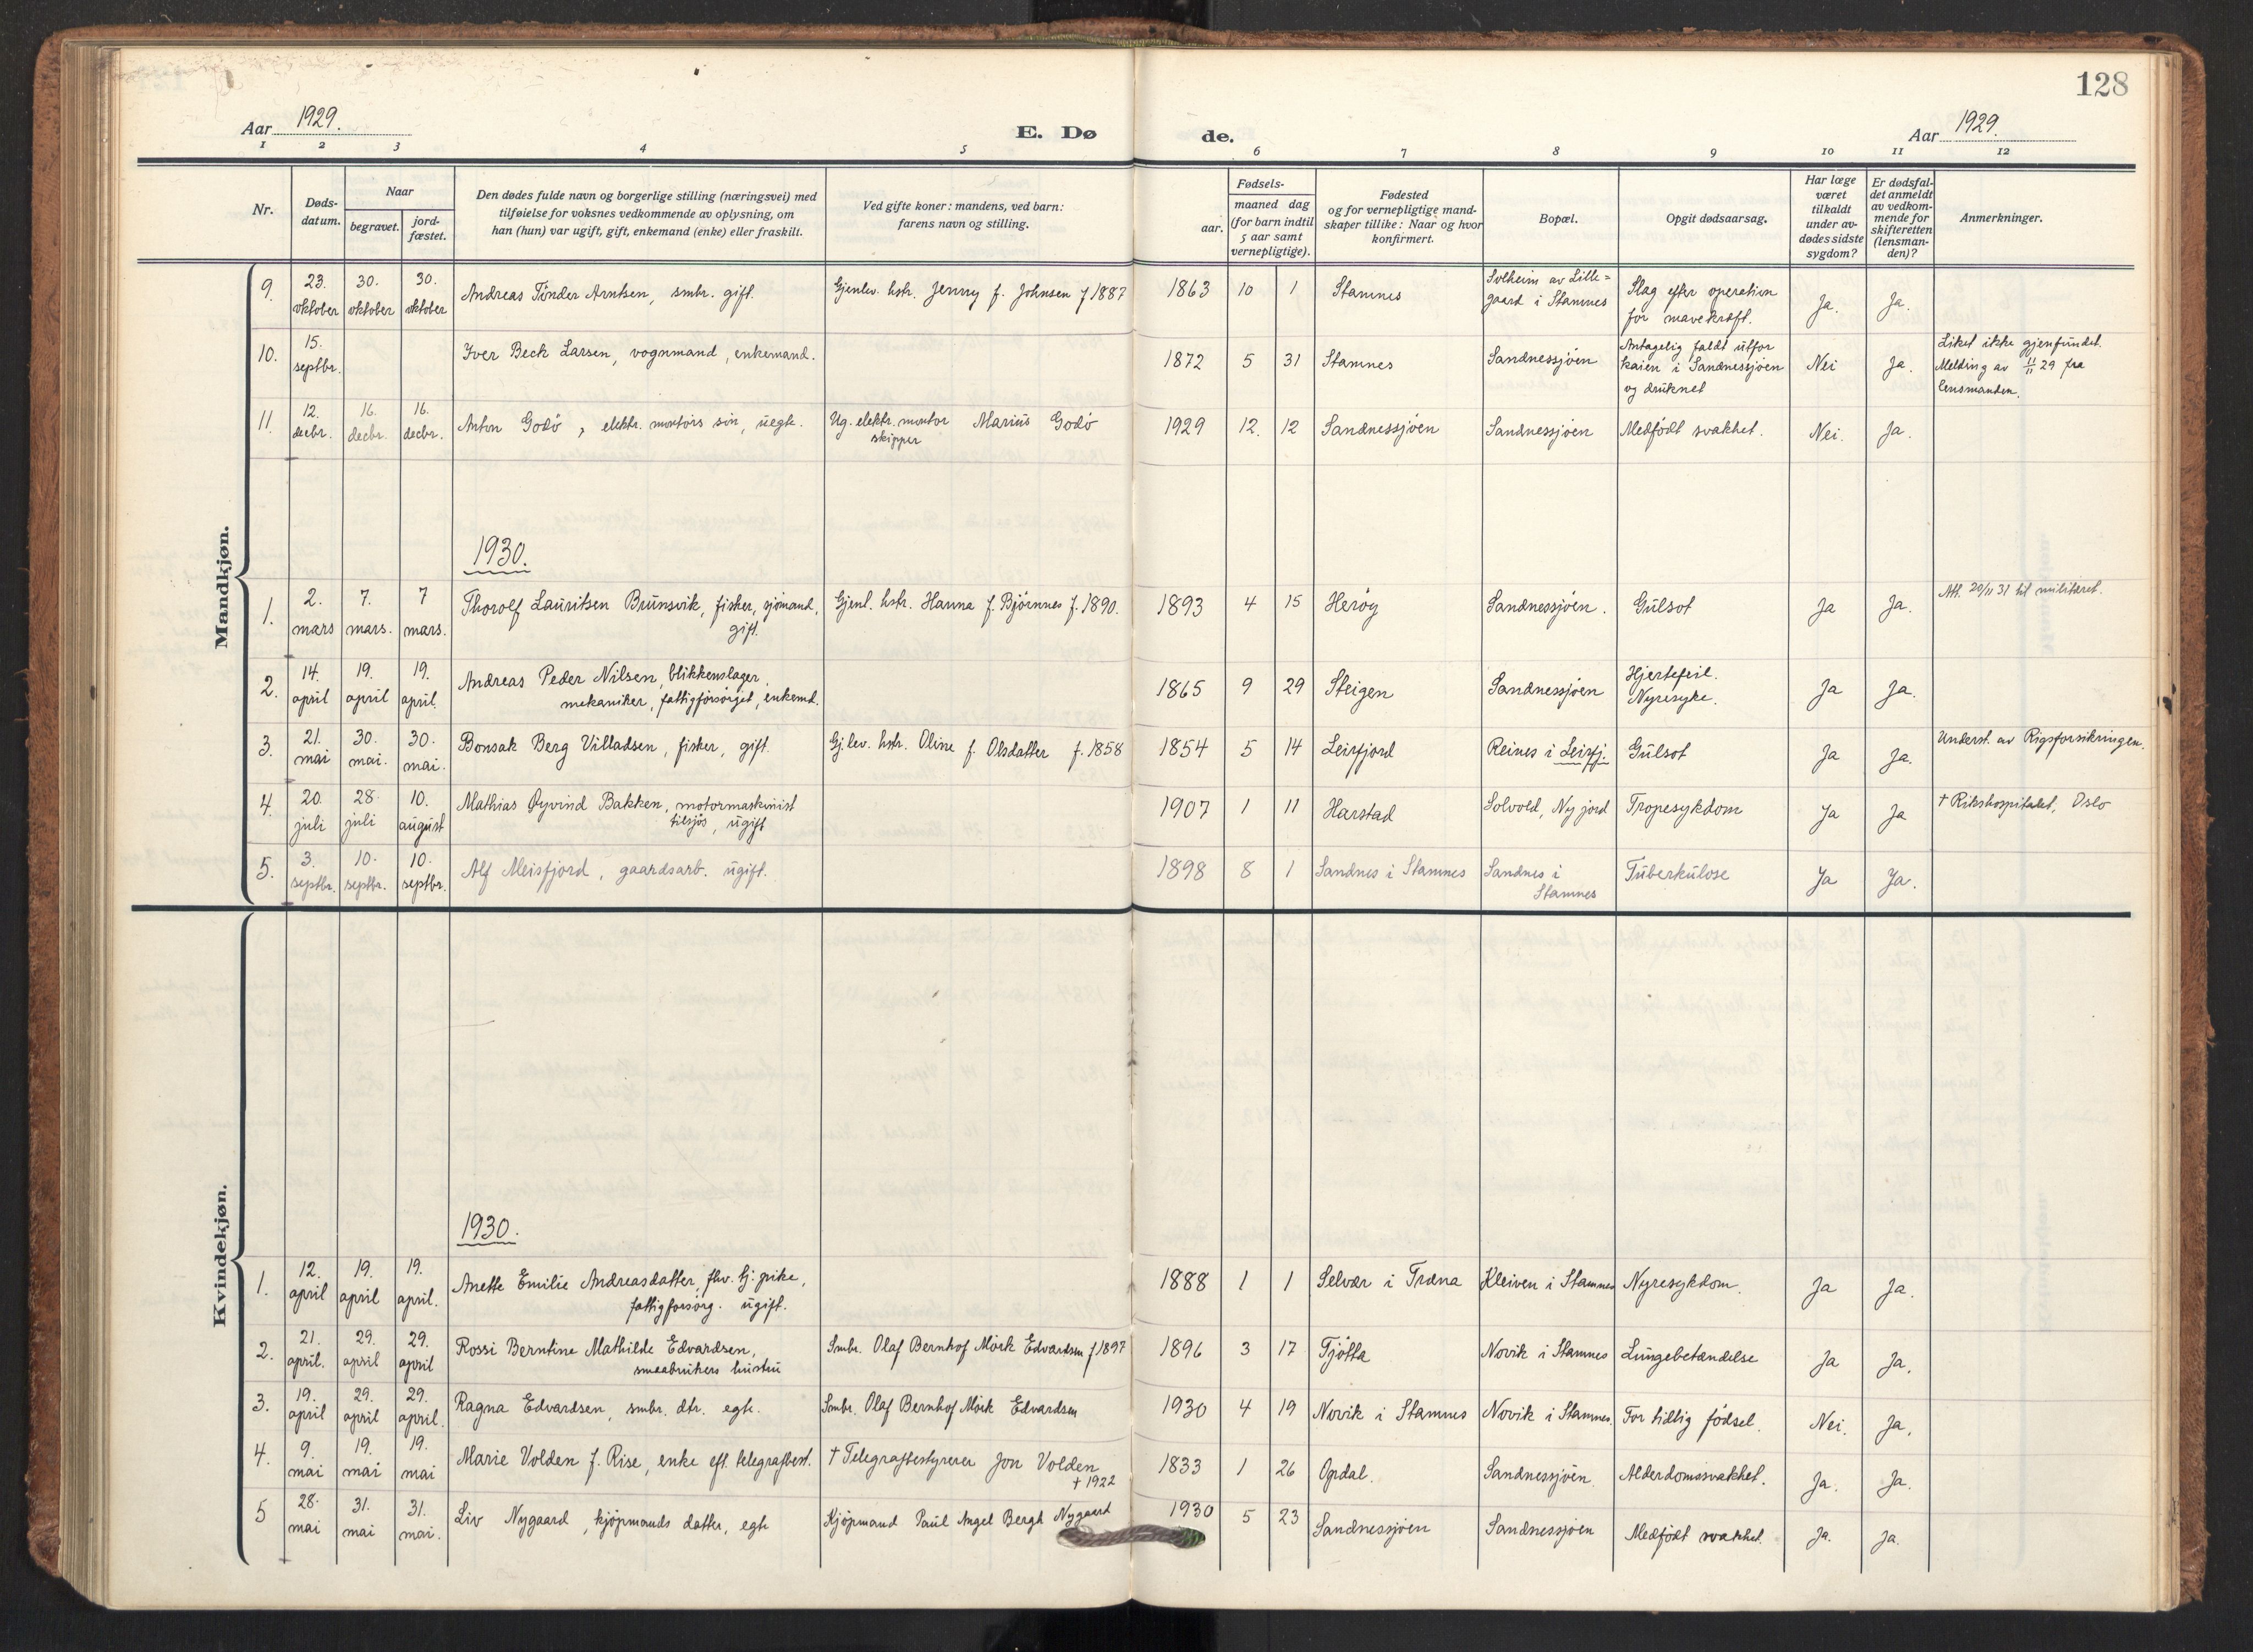 128
Aar 1929.
E. Dø
de.
Aar 1929.
1 2 3 4 5 6 7 8 9 10 11 12
Nr.
Døds-
datum.
Naar
begravet.
jord-
fæstet.
Den dødes fulde navn og borgerlige stilling (næringsvei) med
tilføielse for voksnes vedkommende av oplysning, om
han (hun) var ugift, gift, enkemand (enke) eller fraskilt.
Ved gifte koner: mandens, ved barn:
farens navn og stilling.
Fødsels-
aar.
maaned dag
(for barn indtil
5 aar samt
vernepligtige).
Fødested
og for vernepligtige mand-
skaper tillike: Naar og hvor
konfirmert.
Bopæl.
Opgit dødsaarsag.
Har læge
været
tilkaldt
under av-
dødes sidste
sygdom?
Er dødsfal-
det anmeldt
av vedkom-
mende for
skifteretten
(lensman-
den)?
Anmerkninger.
Mandkjøn.
9. 23. oktober 30. oktober 30. oktober Andreas Tönder Arntsen, smbr. gift. Gjenlev. hstr. Jenny f. Johnsen f 1887 1863 10 1 Stamnes Solheim av Lille=
gaard i Stamnes Slag efter operation
for mavekræft. Ja. Ja.
10. 15. septbr. Iver Beck Larsen, vognmand, enkemand. 1872 5 31 Stamnes Sandnessjöen Antagelig faldt utfor
kaien i Sandnessjöen
og druknet Nei Ja. Liket ikke gjenfundet.
Melding av 11/11 29 fra
lensmanden.
11. 12. decbr. 16. decbr. 16. decbr. Anton Godö, elektr. montörs sön, uegte. Ug. elektr. montör Marius Godö
skipper 1929 12. 12 Sandnessjöen Sandnessjöen Medfödt svakhet. Nei. Ja.
1930.
1. 2. mars 7. mars. 7 mars. Thorolf Lauritsen Brunsvik, fisker, sjömand,
gift. Gjenl. hstr. Hanna f. Björnnes f. 1890. 1893 4 15 Heröy Sandnessjöen. Gulsot Ja Ja. Att. 20/11 31 til militæret.
2. 14. april 19. april 19. april. Andreas Peder Nilsen, blikkenslager,
mekaniker, fattigforsörget, enkemd. 1865 9 29 Steigen Sandnessjöen Hjertefeil.
Nyresyke. Ja Ja.
3. 21. mai 30. mai. 30. mai. Bonsak Berg Villadsen, fisker, gift. Gj.lev. hstr. Oline f. Olsdatter f. 1858 1854 5 14 Leirfjord Reines i Leirfj. Gulsot Ja Ja. Underst. av Rigsforsikringen.
4. 20. juli 28. juli 10. august Mathias Øyvind Bakken, motormaskinist
tilsjös, ugift 1907 1 11 Harstad Solvold, Nyjord Tropesykdom Ja Ja † Rikshospitalet, Oslo
5. 3. septbr. 10. septbr. 10. septbr. Alf Meisfjord, gaardsarb. ugift. 1898 8 1 Sandnes i Stamnes Sandnes i
Stamnes Tuberkulose Ja Ja.
Kvindekjøn.
1930.
1. 12. april 19. april 19. april. Anette Emilie Andreasdatter, fhv. tj. pike,
fattigforsörg. ugift. 1888 1 1 Selvær i Træna Kleiven i Stamnes Nyresykdom. Ja Ja.
2. 21. april. 29. april 29. april Rossi Berntine Mathilde Edvardsen,
smaabrukers hustru Smbr. Olaf Bernhof Mörk Edvardsen f 1897 1896 3 17 Tjötta Novik i Stamnes Lungebetændelse Ja Ja.
3. 19. april 29. april 29. april. Ragna Edvardsen, smbr. dtr. egte. Smbr. Olaf Bernhof Mörk Edvardsen 1930 4 19 Novik i Stamnes Novik i Stamnes. For tidlig födsel. Nei. Ja.
4. 9. mai 19. mai 19. mai Marie Volden f. Rise, enke eft. telegrafbest. † Telegrafbestyrerer Jon Volden
† 1922 1833 1 26 Opdal. Sandnessjöen Alderdomssvakhet. Ja. Ja.
5 28. mai 31. mai 31. mai. Liv Nygaard, kjöpmands datter, egte Kjöpmand Paul Angel Bergh Nygaard 1930 5 23 Sandnessjöen Sandnessjöen Medfödt svakhet. Ja. Ja.